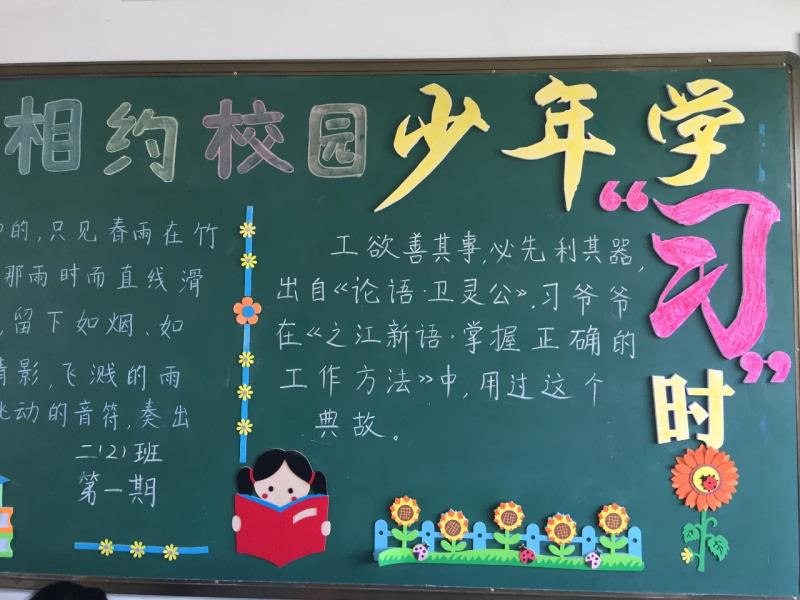 相约校园
少年学“习”时
的,只见春雨在竹
那雨时而直线滑
,留下如烟、如
倩影,飞溅的雨
动的音符,奏出
二(2)班
第一期
工欲善其事,必先利其器,
出自《论语·卫灵公》,习爷爷
在《之江新语·掌握正确的
工作方法》中,用过这个
典故。